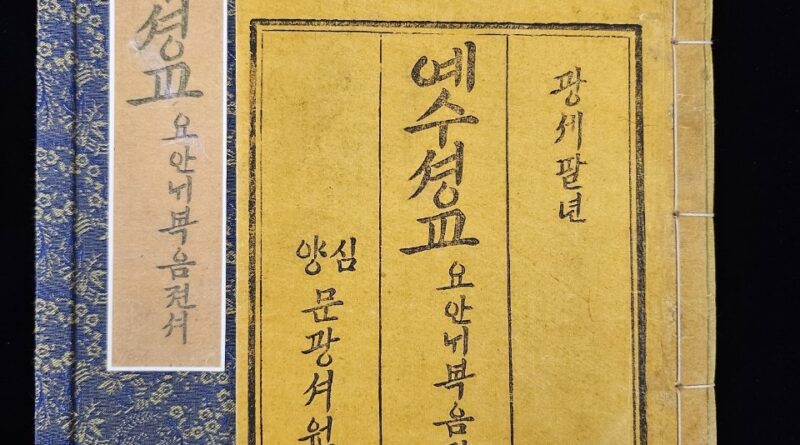 광세팔년
예수셩교 요안ᄂᆡ복음
심양 문광셔원
셩교 요안ᄂᆡ복음젼셔